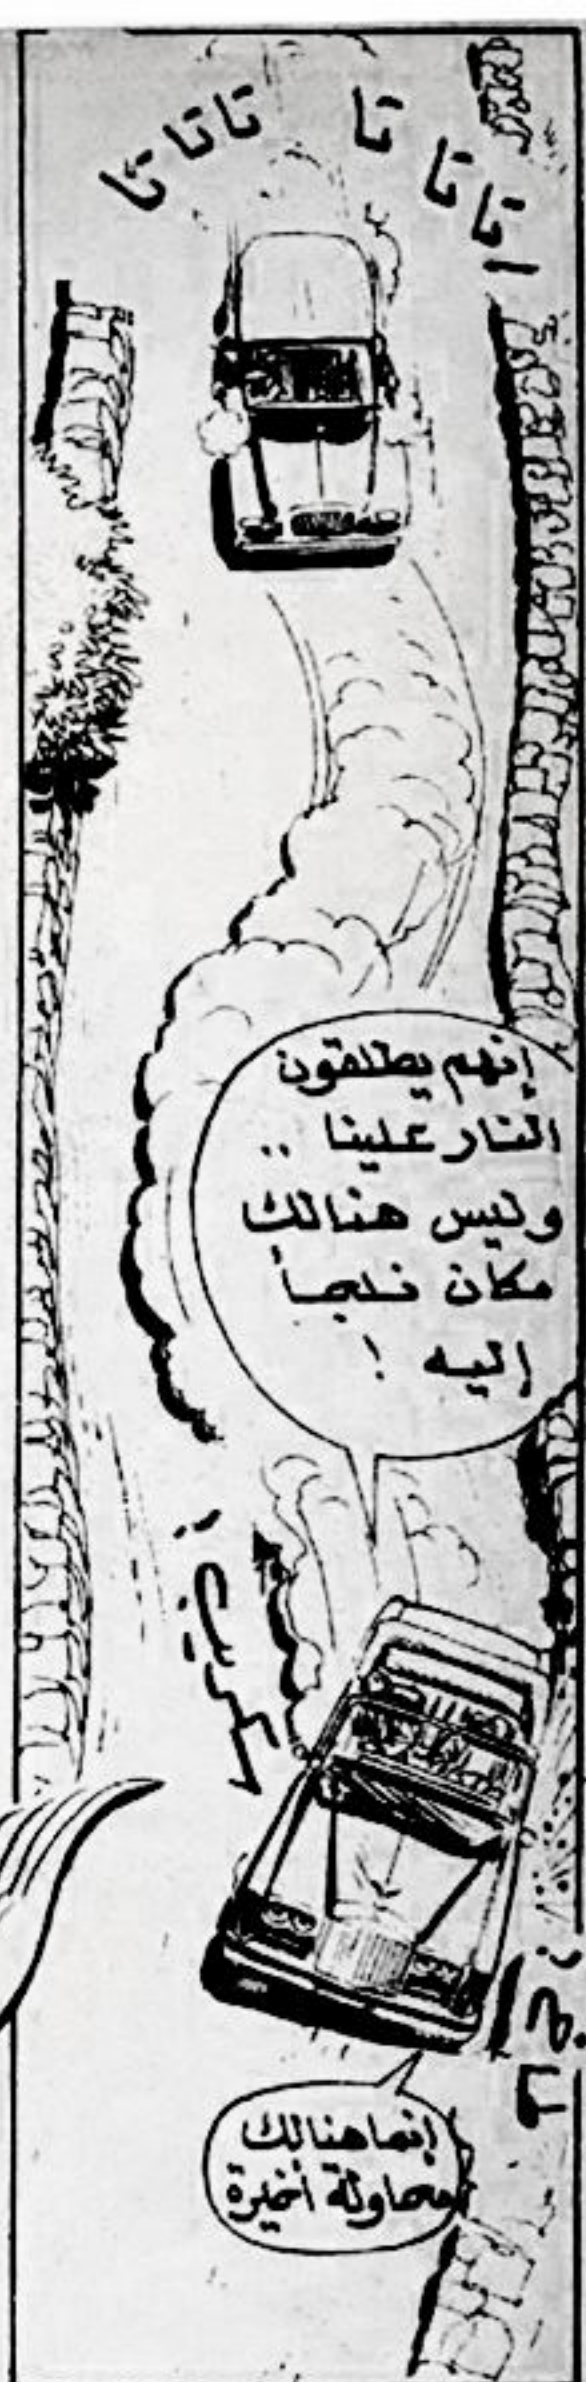 اتا تا تا تاتا تا
إنهم يطلقون
النار علينا ..
وليس هنالك
مكان نلجأ
إليه !
سكريت !
طاخ !
إنما هنالك
محاولة أخيرة